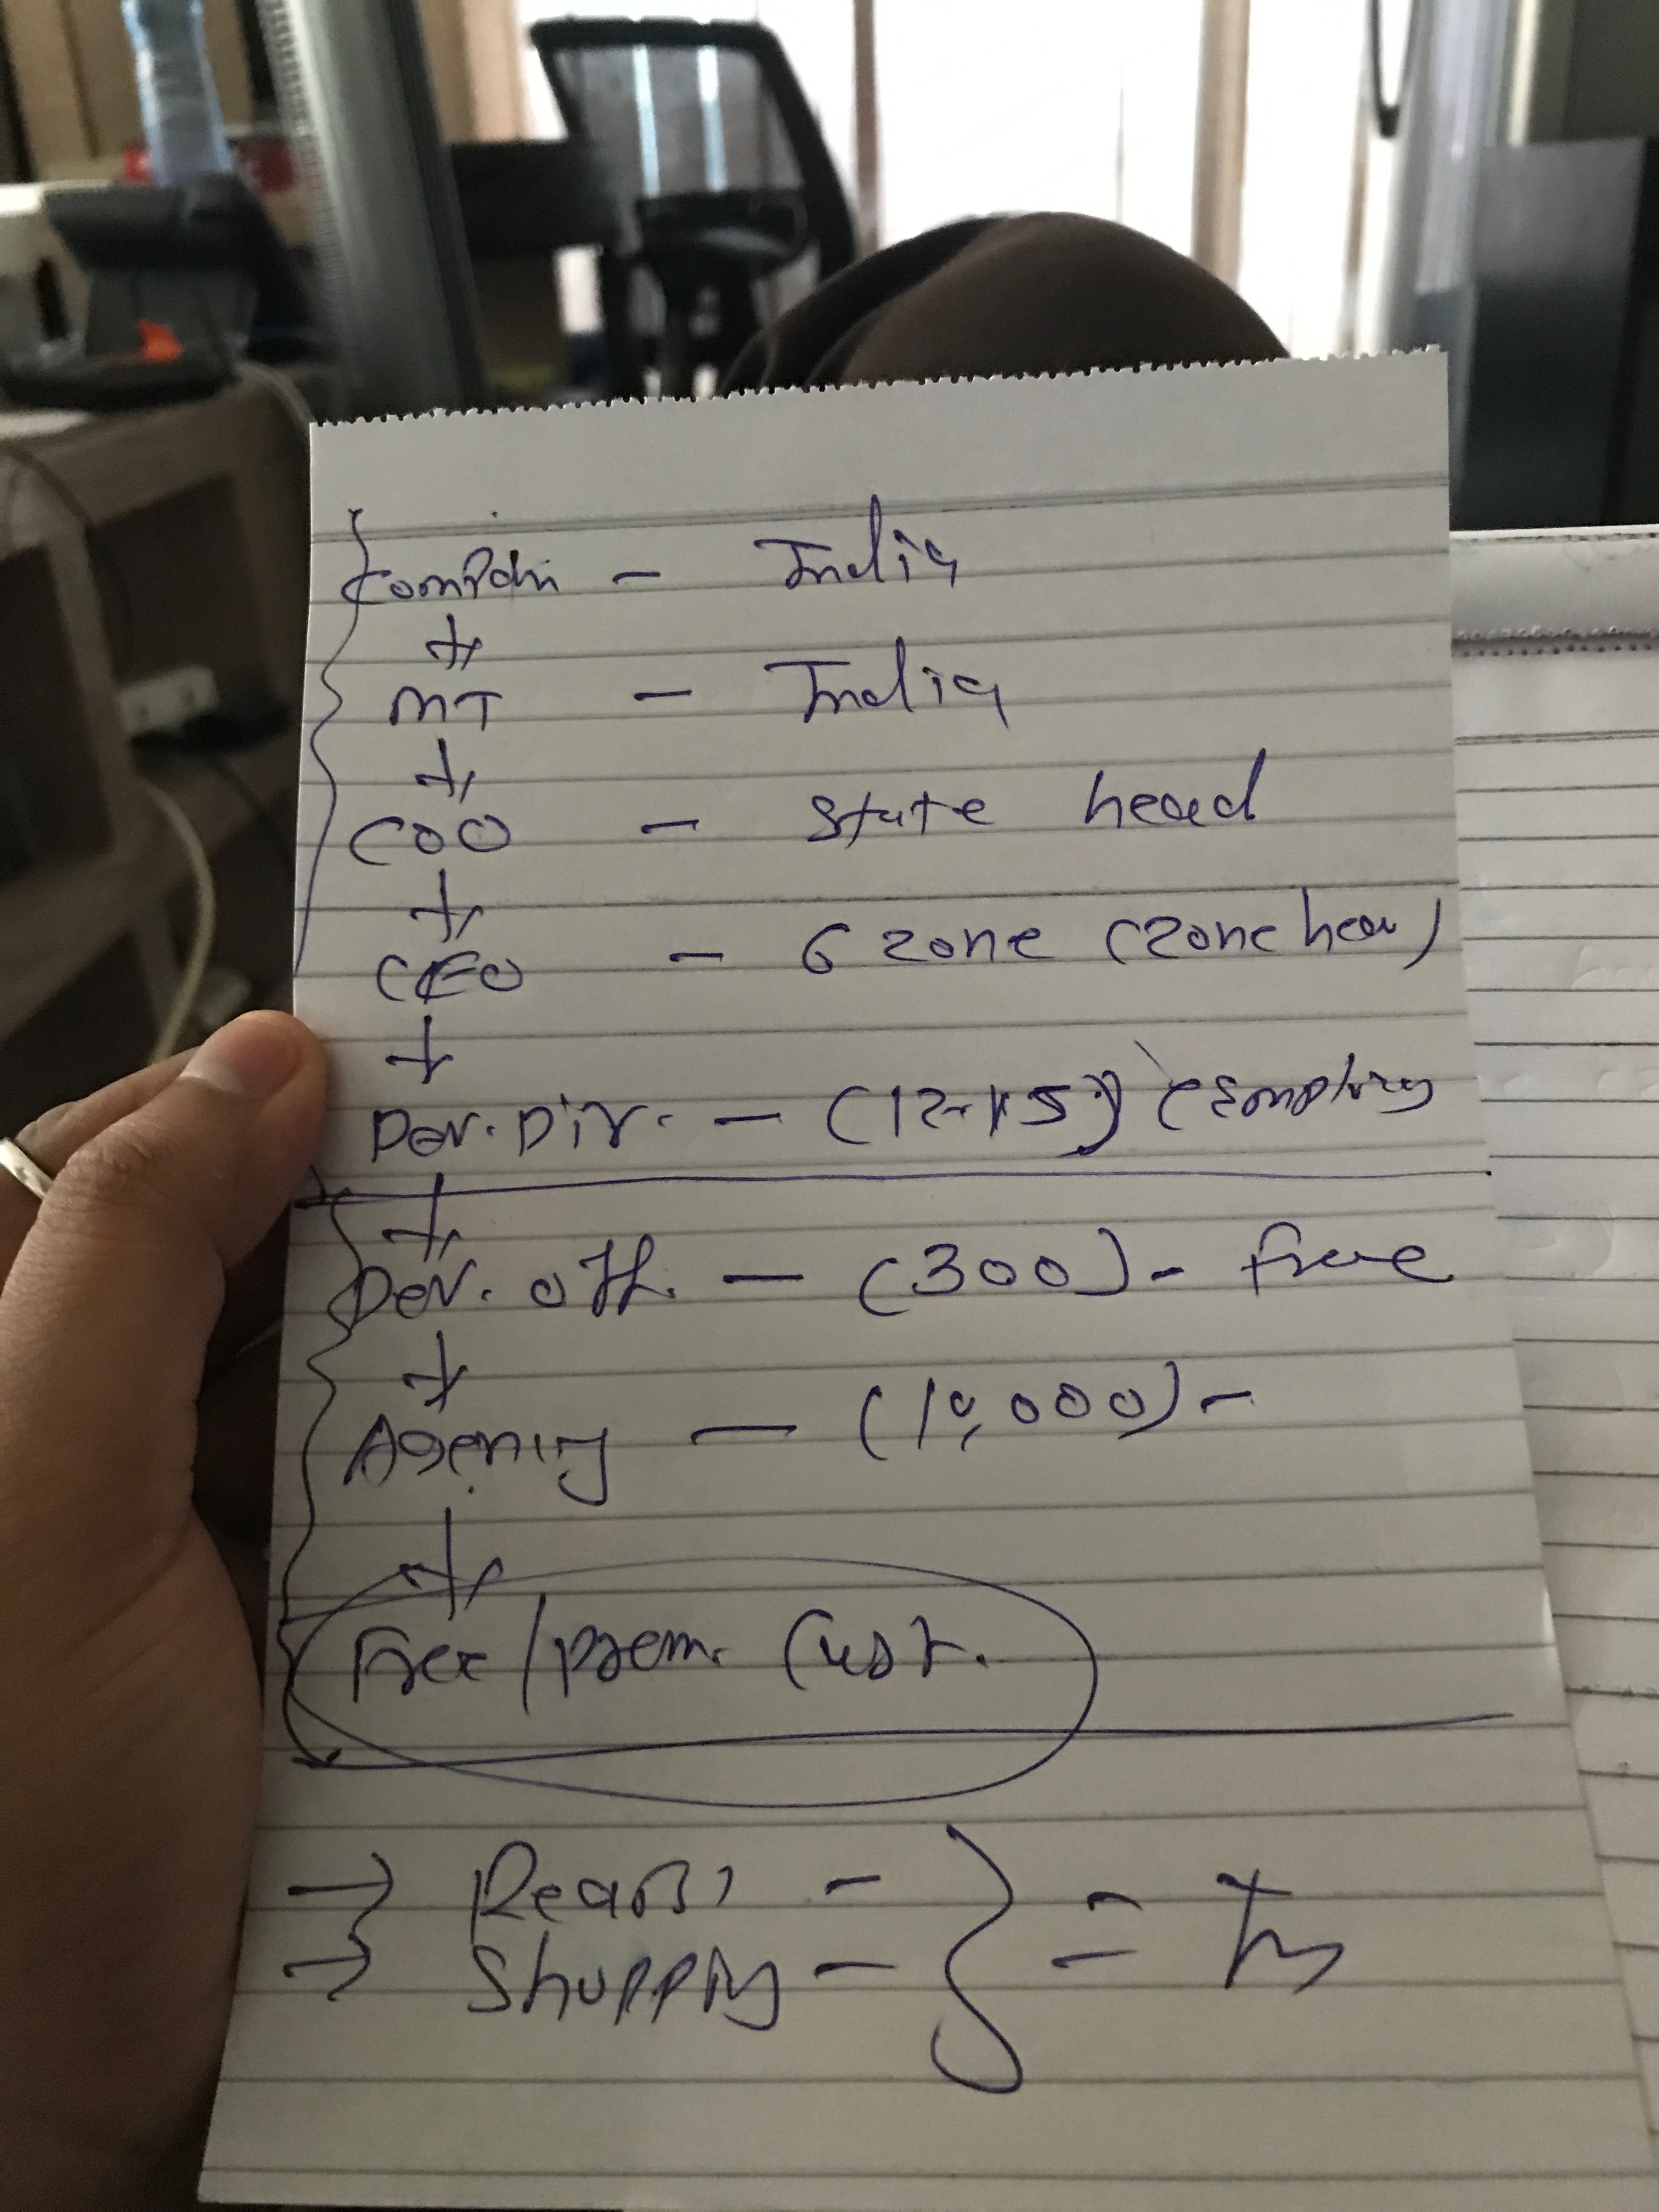 - India
MT - India
COO - State head
CEO - 6 zone (zone hea)
Dev. Dir. - (12+15)
Dev. off. - (300) - free
Agency - (10,000) -
Free / prem. Cust.
→ -
→ Shopping - } =